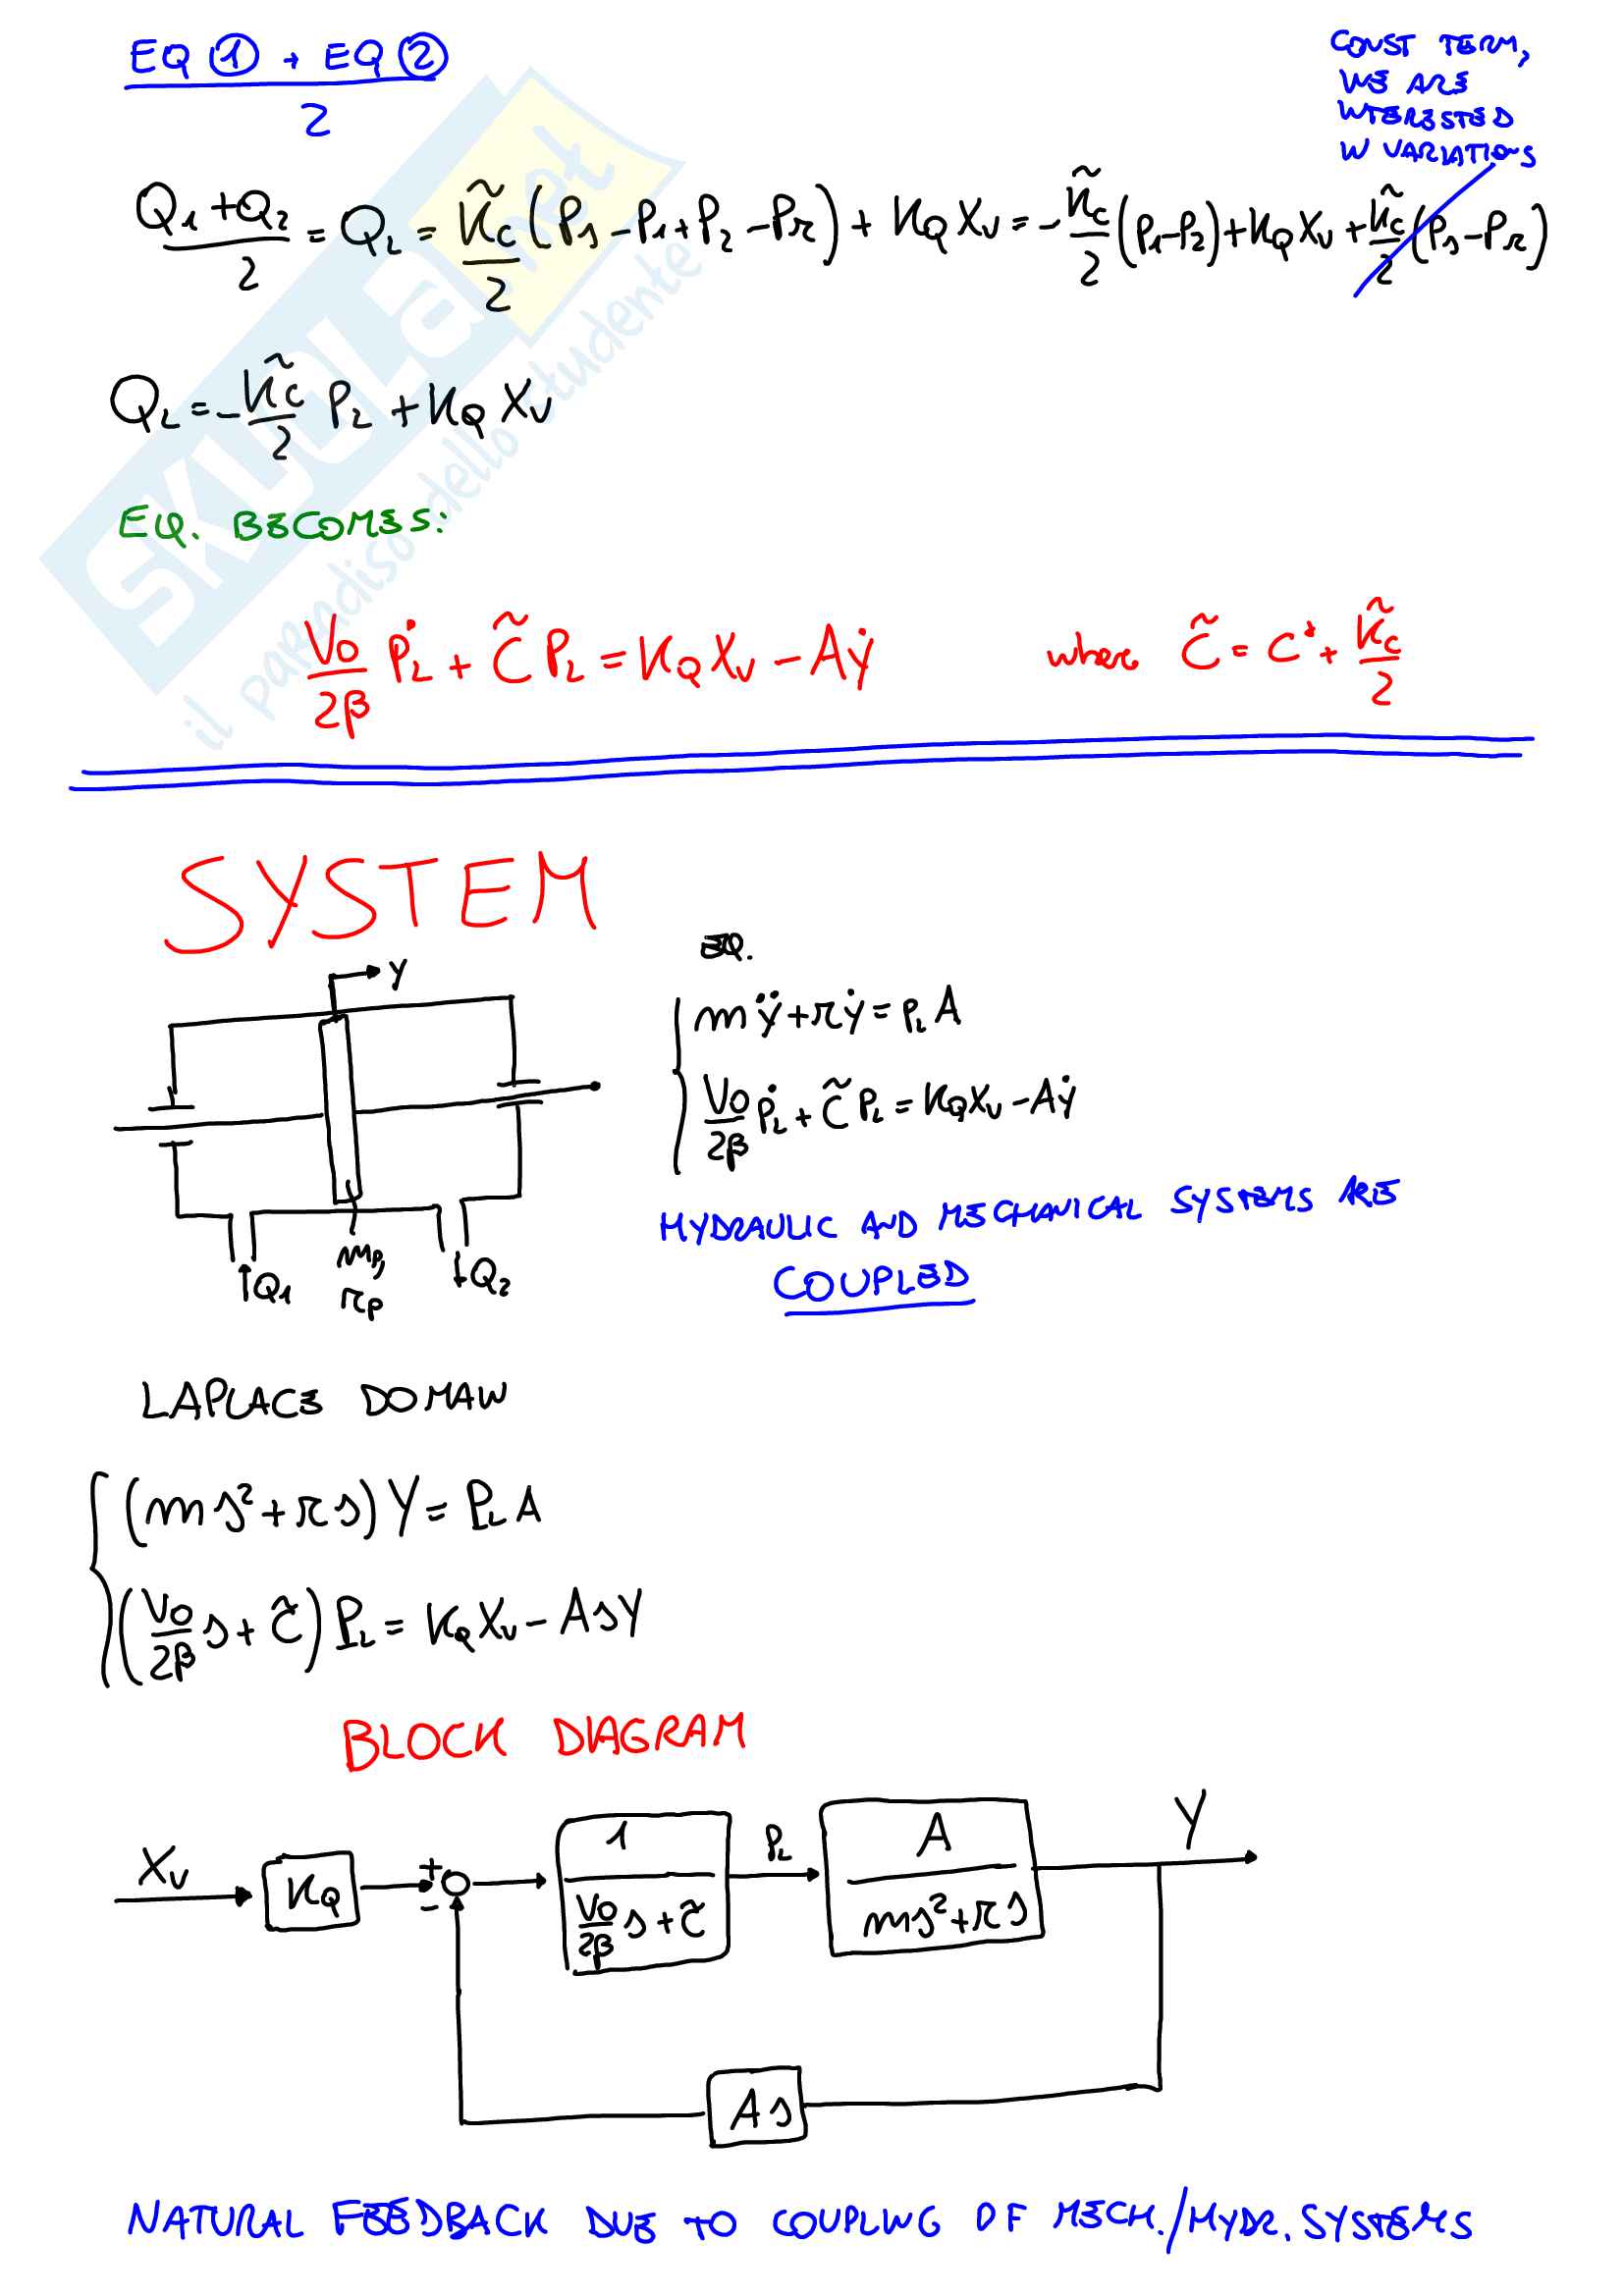 EQ ① + EQ ②
2
CONST TERM,
WE ARE
INTERESTED
IN VARIATIONS
(Q₁+Q₂)/2 = Q_L = K̃_c/2 (P_s - P_1 + P_2 - P_r) + K_Q X_v = -K̃_c/2 (P_1 - P_2) + K_Q X_v + K̃_c/2 (P_s - P_r)
Q_L = -K̃_c/2 P_L + K_Q X_v
EQ. BECOMES:
V_0/2β Ṗ_L + C̃ P_L = K_Q X_v - Aẏ where C̃ = C* + K̃_c/2
SYSTEM
y
EQ.
mÿ + rẏ = P_L A
V_0/2β Ṗ_L + C̃ P_L = K_Q X_v - Aẏ
m_p,
r_p
Q_1
Q_2
HYDRAULIC AND MECHANICAL SYSTEMS ARE
COUPLED
LAPLACE DOMAIN
(ms² + rs) Y = P_L A
(V_0/2β s + C̃) P_L = K_Q X_v - AsY
BLOCK DIAGRAM
X_v
K_Q
+
-
1/(V_0/2β s + C̃)
P_L
A/(ms² + rs)
Y
As
NATURAL FEEDBACK DUE TO COUPLING OF MECH./HYDR. SYSTEMS
SKUOLA.net
il paradiso dello studente